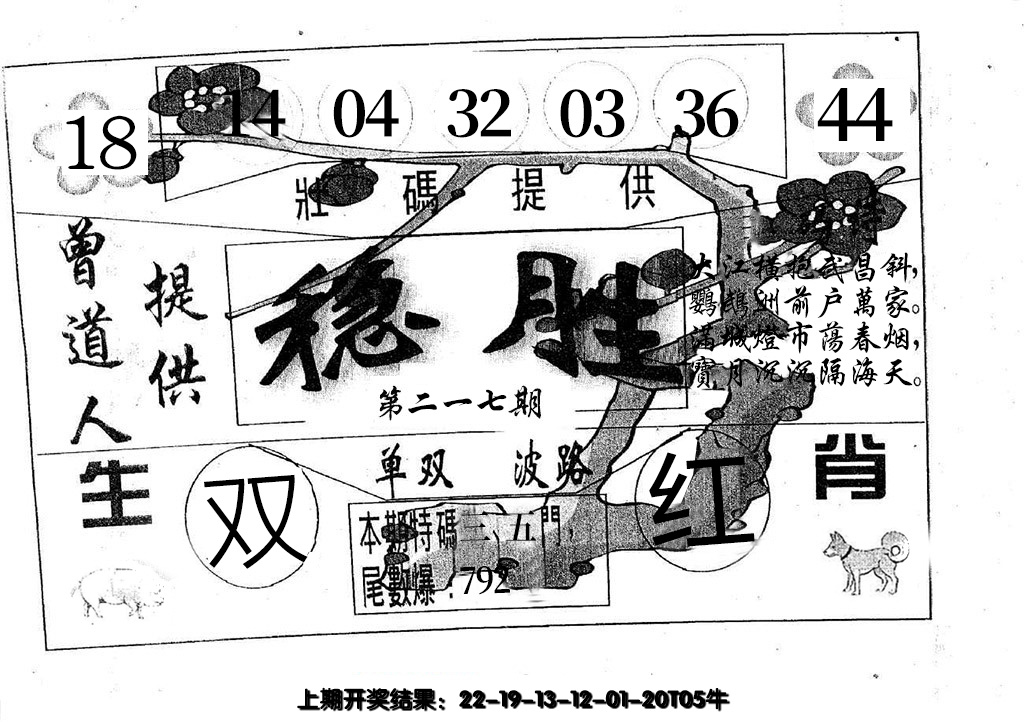 18 14 04 32 03 36 44
壯碼提供
曾道人
提供
稳胜
第二一七期
大江橫抱武昌斜，
鸚鵡洲前户萬家。
滿城燈市蕩春烟，
寶月沉沉隔海天。
生肖
单双 波路
双 红
本期特碼三、五門，
尾數爆：792
上期开奖结果：22-19-13-12-01-20T05牛